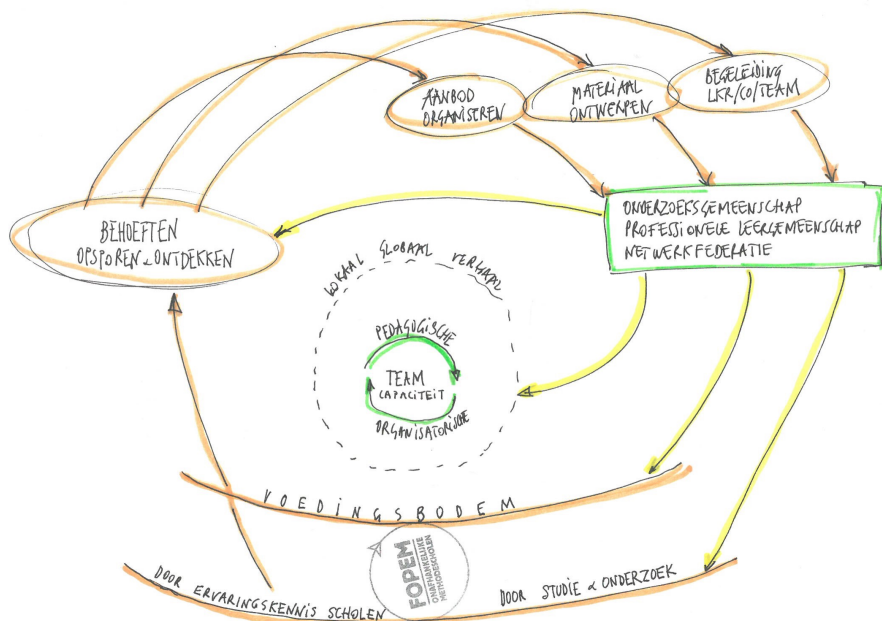 AANBOD
ORGANISEREN
MATERIAAL
ONTWERPEN
BEGELEIDING
LKR/CO/TEAM
BEHOEFTEN
OPSPOREN & ONTDEKKEN
ONDERZOEKSGEMEENSCHAP
PROFESSIONELE LEERGEMEENSCHAP
NETWERKFEDERATIE
LOKAAL GLOBAAL VERHAAL
PEDAGOGISCHE
TEAM
CAPACITEIT
ORGANISATORISCHE
VOEDINGSBODEM
FOPEM
ONAFHANKELIJKE
METHODESCHOLEN
DOOR ERVARINGSKENNIS SCHOLEN
DOOR STUDIE & ONDERZOEK